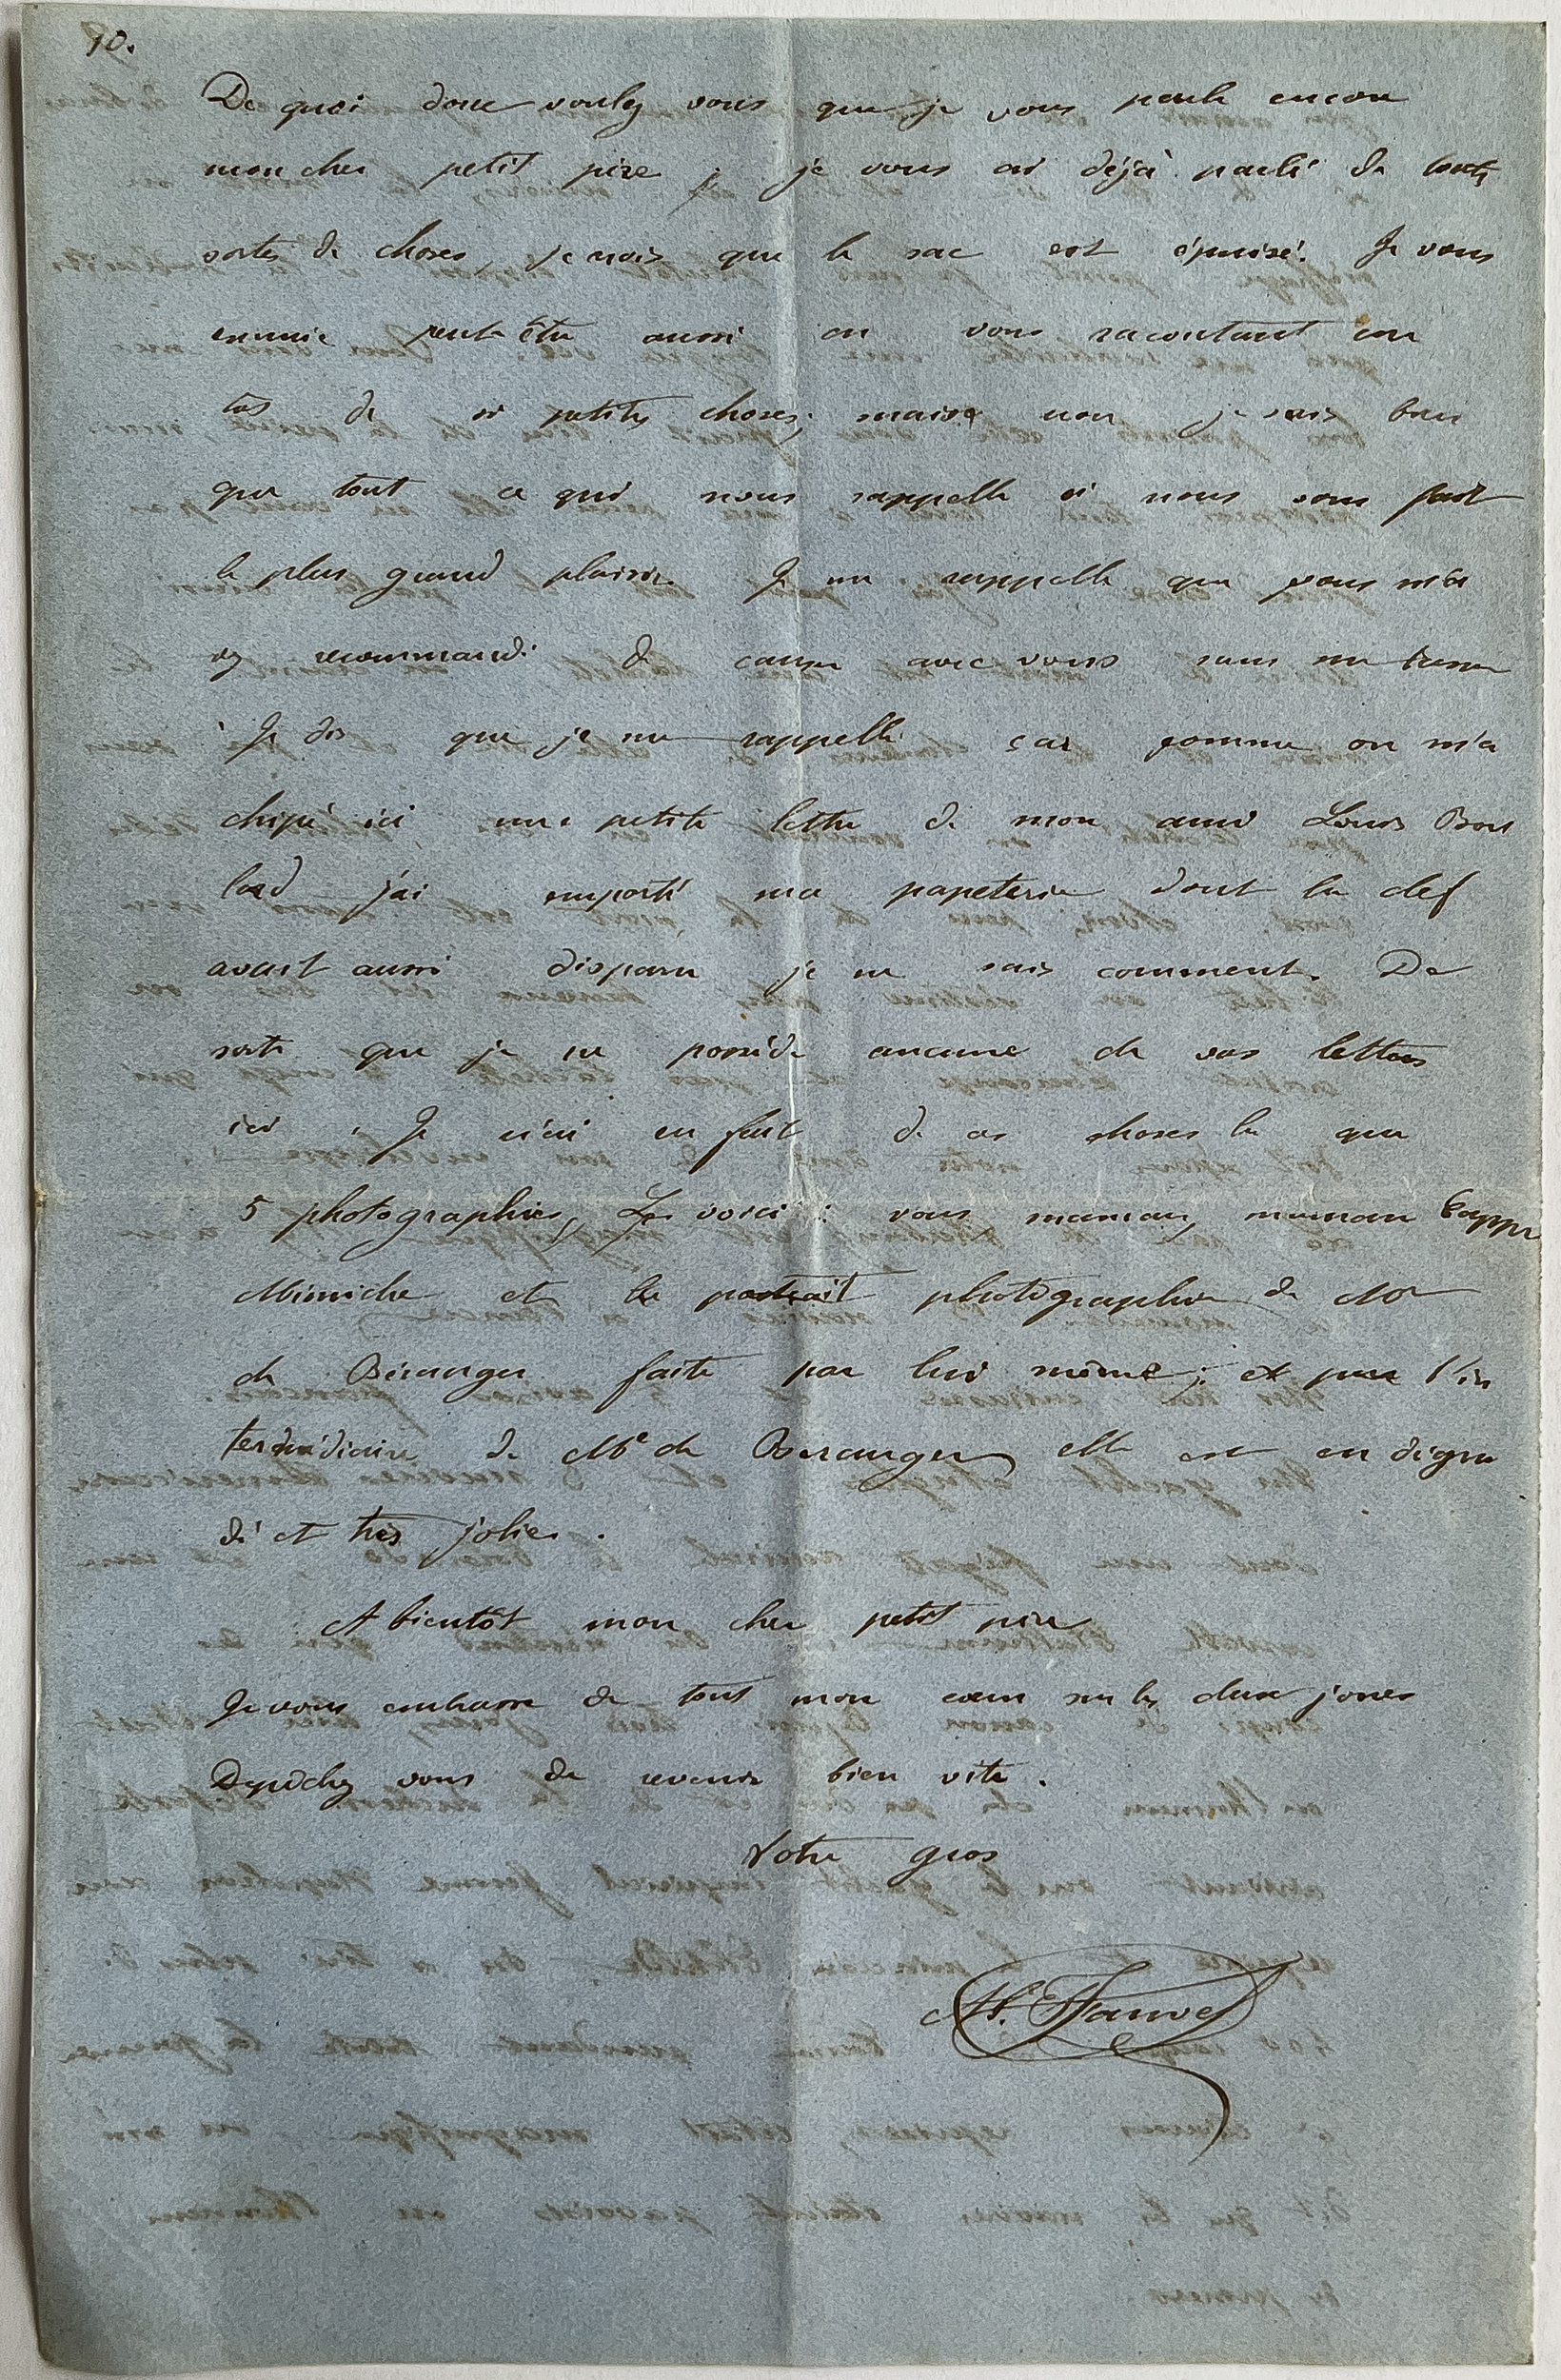 10.
De quoi donc voulez vous que je vous parle encore
mon cher petit père ; je vous ai déjà parlé de toute
sortes de choses, je crois que le sac est épuisé. Je vous
ennuie peut-être aussi en vous racontant un
tas de si petites choses; mais non je sais bien
que tout ce qui nous rappelle à nous vous fait
le plus grand plaisir. Je me rappelle que vous m'a
ez recommandé de causer avec vous sans me
Je dis que je me rappelle car comme on m'a
chipé ici une petite lettre de mon ami Louis Bou
lard j'ai emporté ma papeterie dont la clef
avait aussi disparu je ne sais comment. De
sorte que je ne possède aucune de vos lettres
ici , Je n'ai en fait de ces choses la que
5 photographies, Les voici : vous maman, maman
Mimiche et la portrait photographie de Mr
de Béranger faite par lui même; et par l'in
termédiaire de Me de Beranger, elle est en dégra
dé et très jolie.
A bientôt mon cher petit père
Je vous embrasse de tout mon cœur sur les deux joues
Depêchez vous de revenir bien vite.
Votre gros